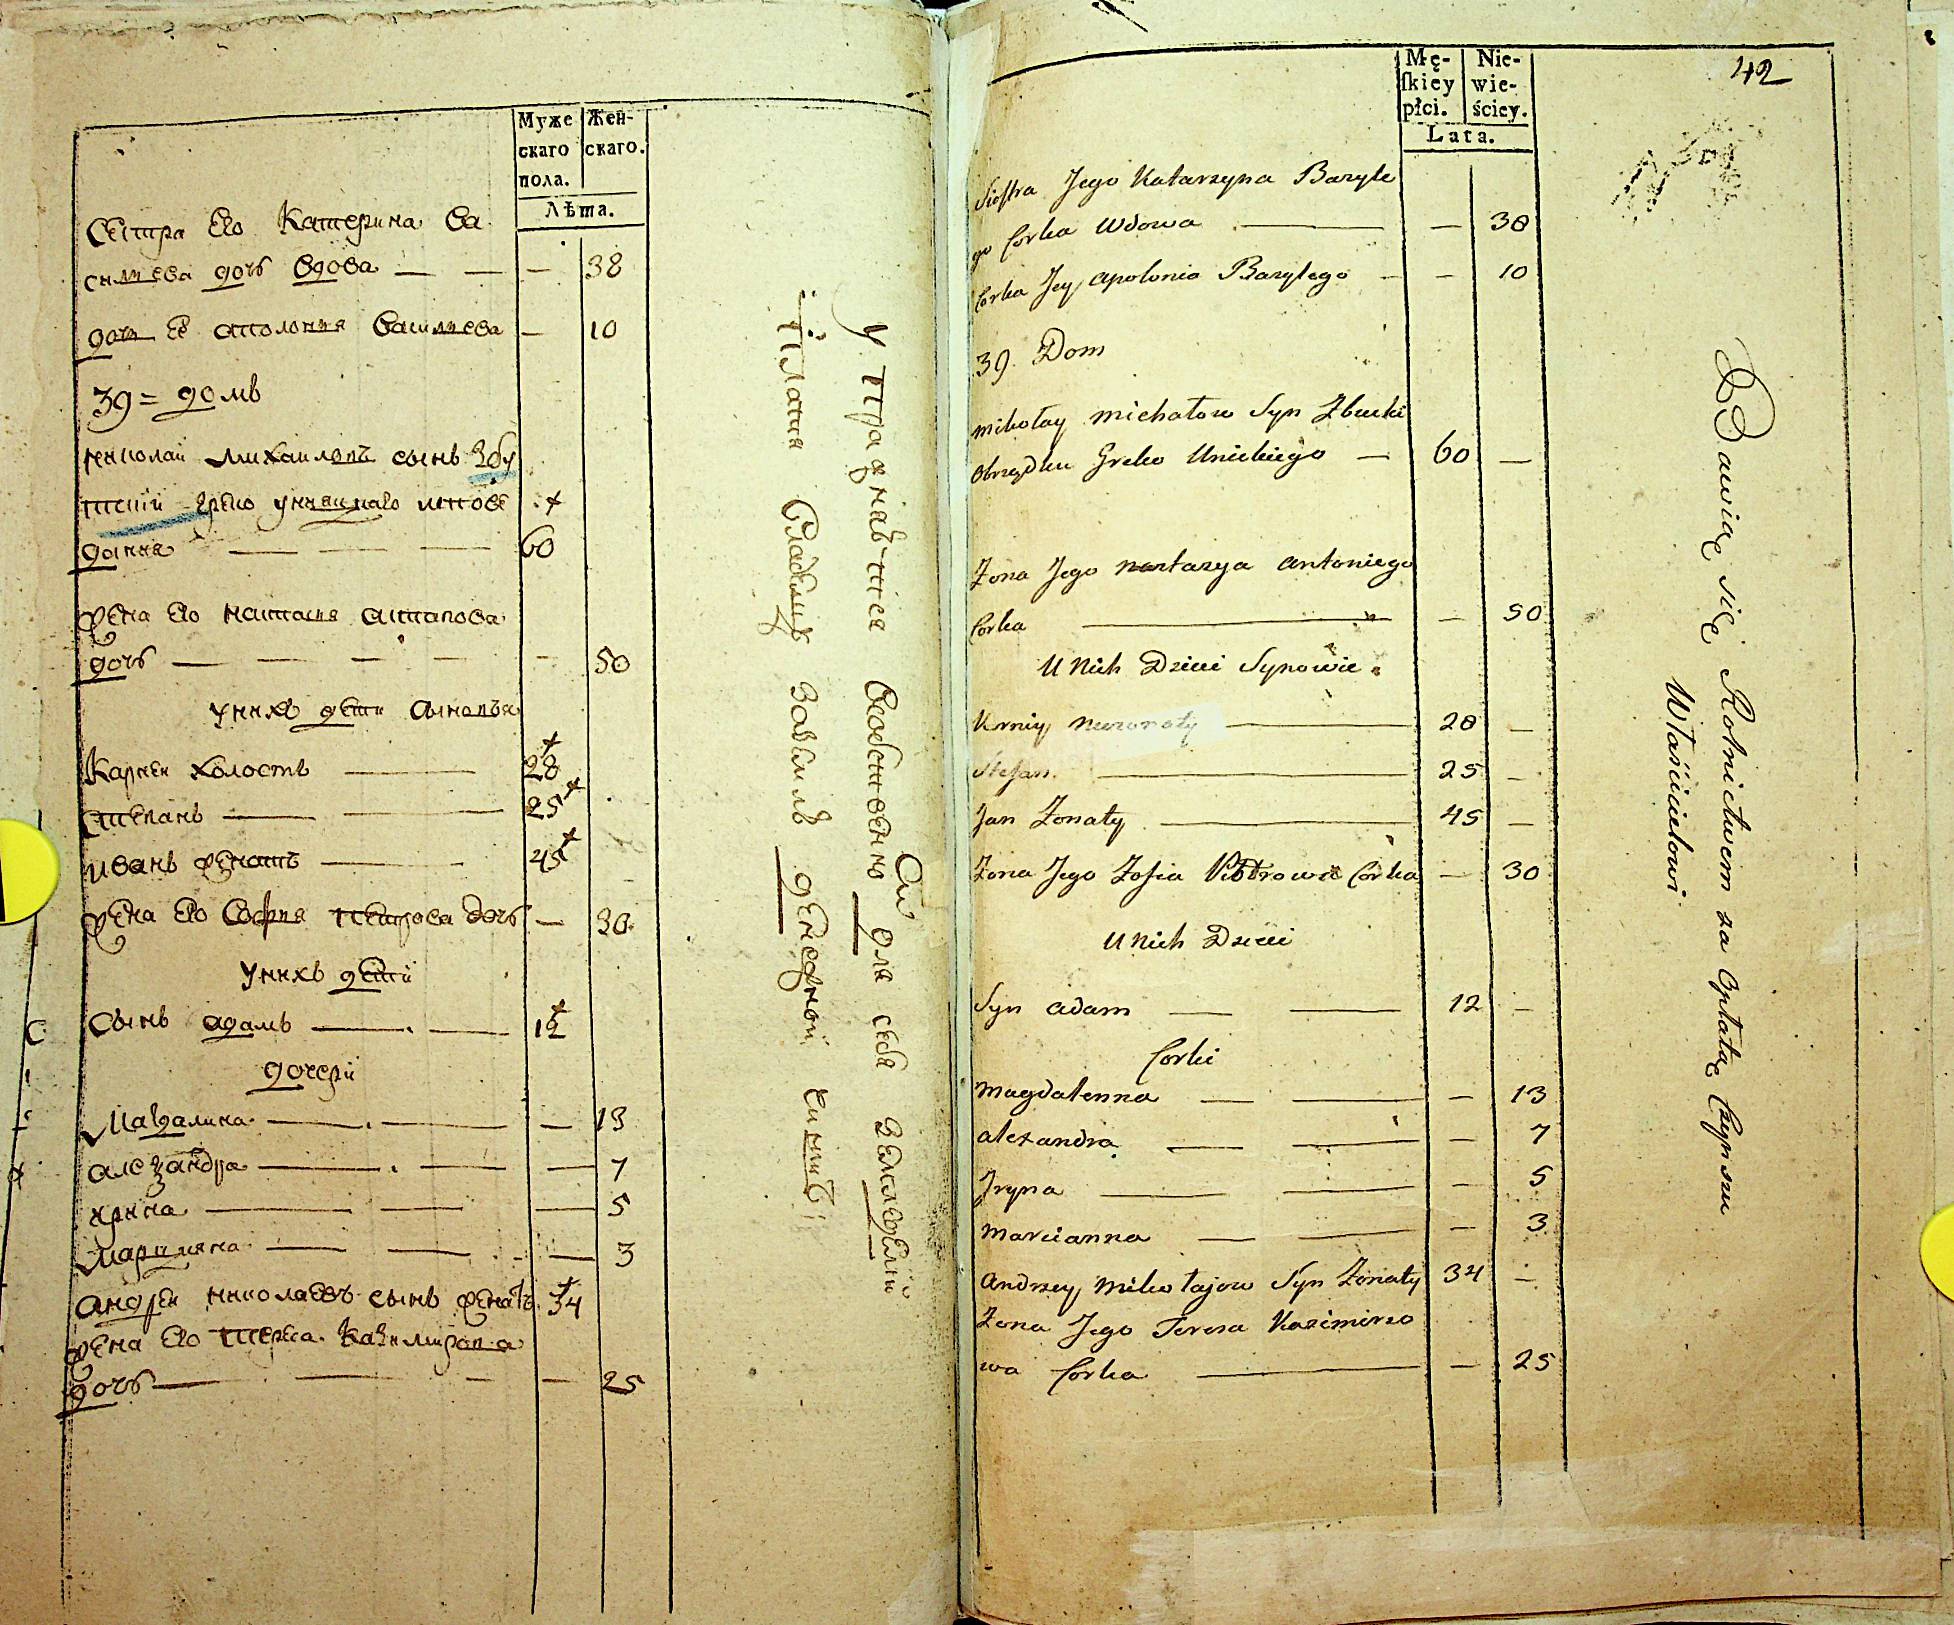 Муже
скаго
пола.
Жен-
скаго.
Лѣта.
Сестра Его Катерина Ва
силиева дочь вдова — — — 38
дочь Её Аполония Василиева — 10
39 = домъ
Николай Михаиловъ сынъ Збу
Греко Униацкаго
60
Жена Его Настасия Антонова
дочь — — — — — 50
У нихъ дети Сыновья
Карней холостъ — 28
Степанъ — — 25
Иванъ женатъ — 45
Жена Его София Петрова дочь — 30
У нихъ дети
Сынъ Адамъ — — 12
дочери
Магдалина — — — 13
Александра — — — 7
Ирина — — — 5
Марцияна — — — 3
Андрей Николаевъ сынъ женатъ 34
Жена Его Тереса Казимирова
дочь — — — — 25
для себя
42
Mę-
ſkiey
płci.
Nie-
wie-
ściey.
Lata.
Siostra Jego Katarzyna Bazyle
go Corka Wdowa — — 38
Corka Jey Apolonia Bazylego — — 10
39 Dom
Mikołay Michałow Syn Zbucki
Obrządku Greko Unickiego — 60 —
Żona Jego Nastazya Antoniego
Corka — — 50
U Nich Dzieci Synowie
Kornię Nieżonaty — 28 —
Stefan — 25 —
Jan Żonaty — 45 —
Żona Jego Zofia Piotrowa Corka — 30
U Nich Dzieci
Syn Adam — — 12 —
Corki
Magdalenna — — — 13
Alexandra — — — 7
Jryna — — — 5
Marcianna — — — 3
Andrzey Mikołajow Syn Żonaty 34 —
Żona Jego Teresa Kazimirzo
wa Corka — — 25
Bawią się Rolnictwem za Opłatą Czynszu
Właścicielowi